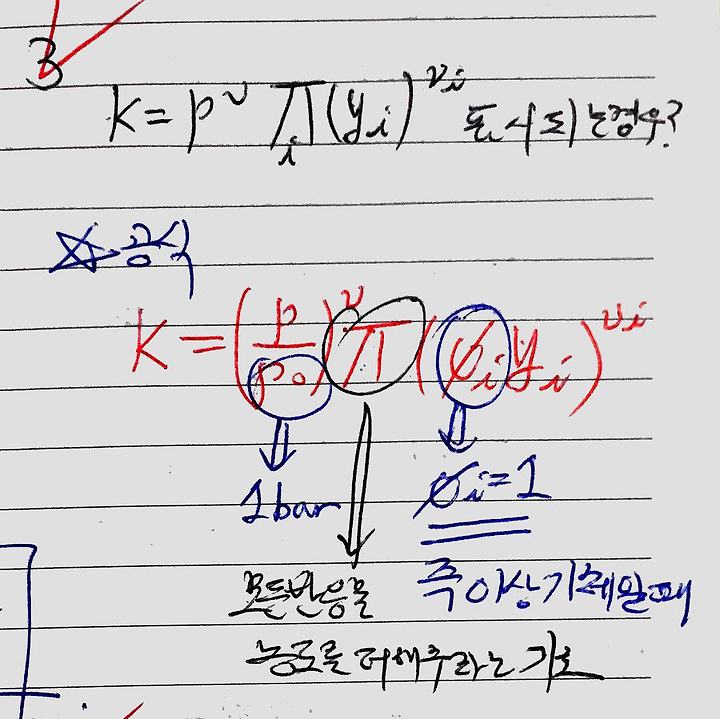 3
K = P^ν ∏_i (y_i)^νi 표시되는경우?
☆공식
K = (P/P₀)^ν π (ϕ_i y_i)^νi
1bar
ϕ_i = 1
모든반응물
즉 이상기체일때
농도를 더해주라는 기호